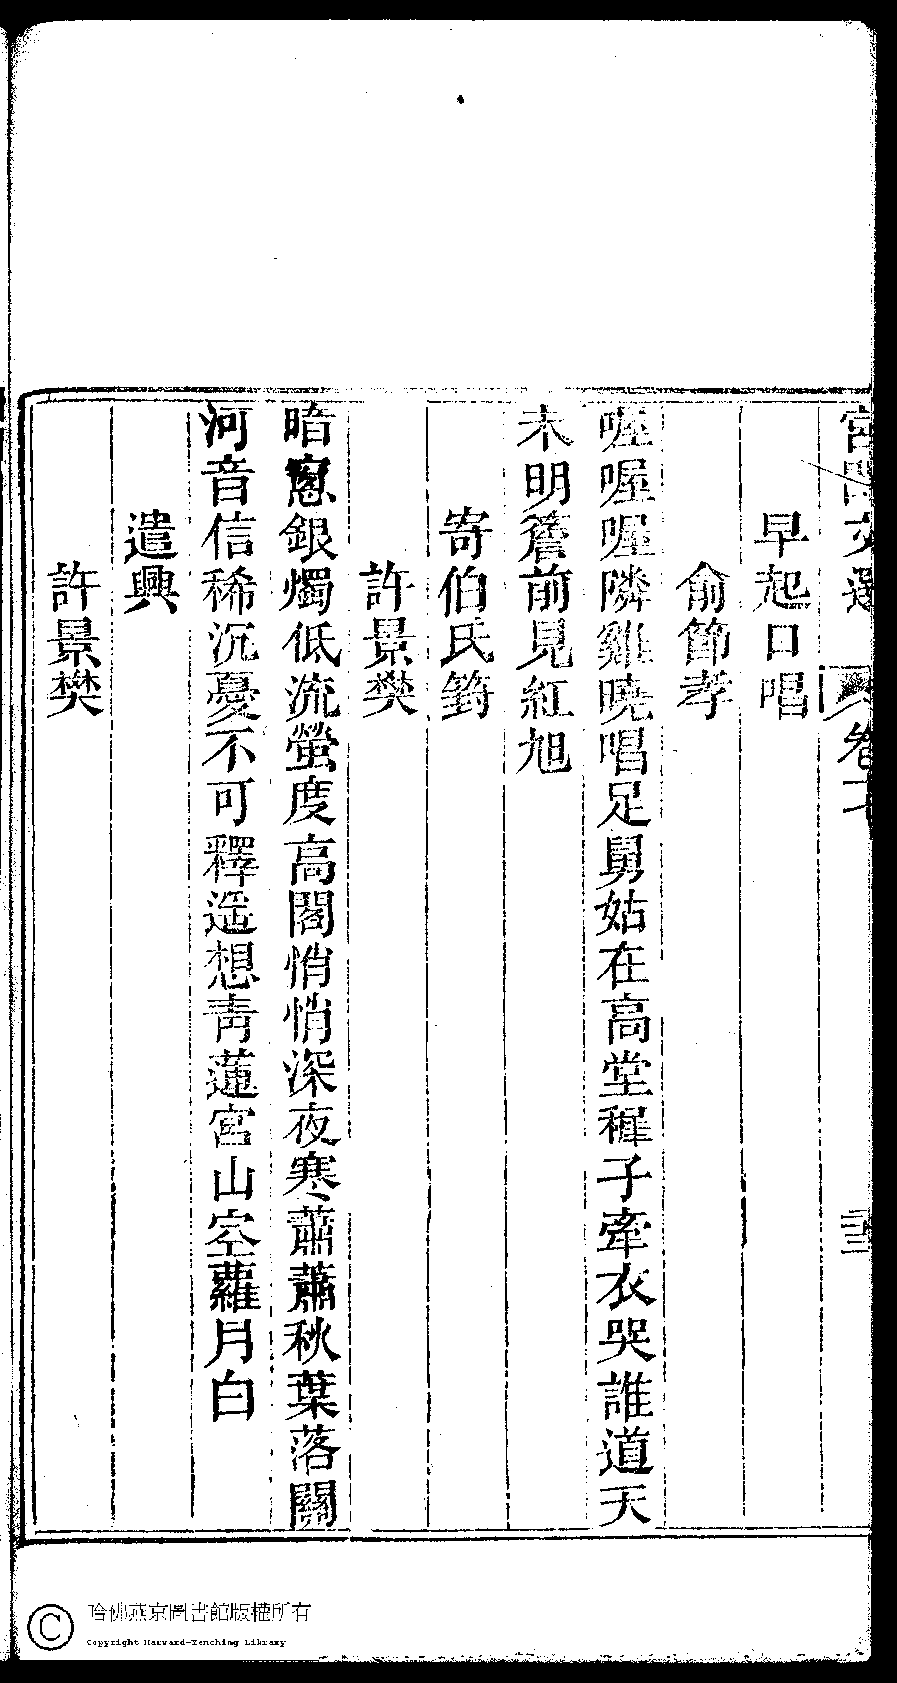 宮閨文選 卷二十 三
早起口唱
俞節孝
喔喔喔隣雞曉唱足舅姑在高堂穉子牽衣哭誰道天
未明簷前見紅旭
寄伯氏篈
許景樊
暗窻銀燭低流螢度高閣悄悄深夜寒蕭蕭秋葉落關
河音信稀沉憂不可釋遥想靑蓮宮山空蘿月白
遣興
許景樊
哈佛燕京圖書館版權所有
Copyright Harvard-Yenching Library